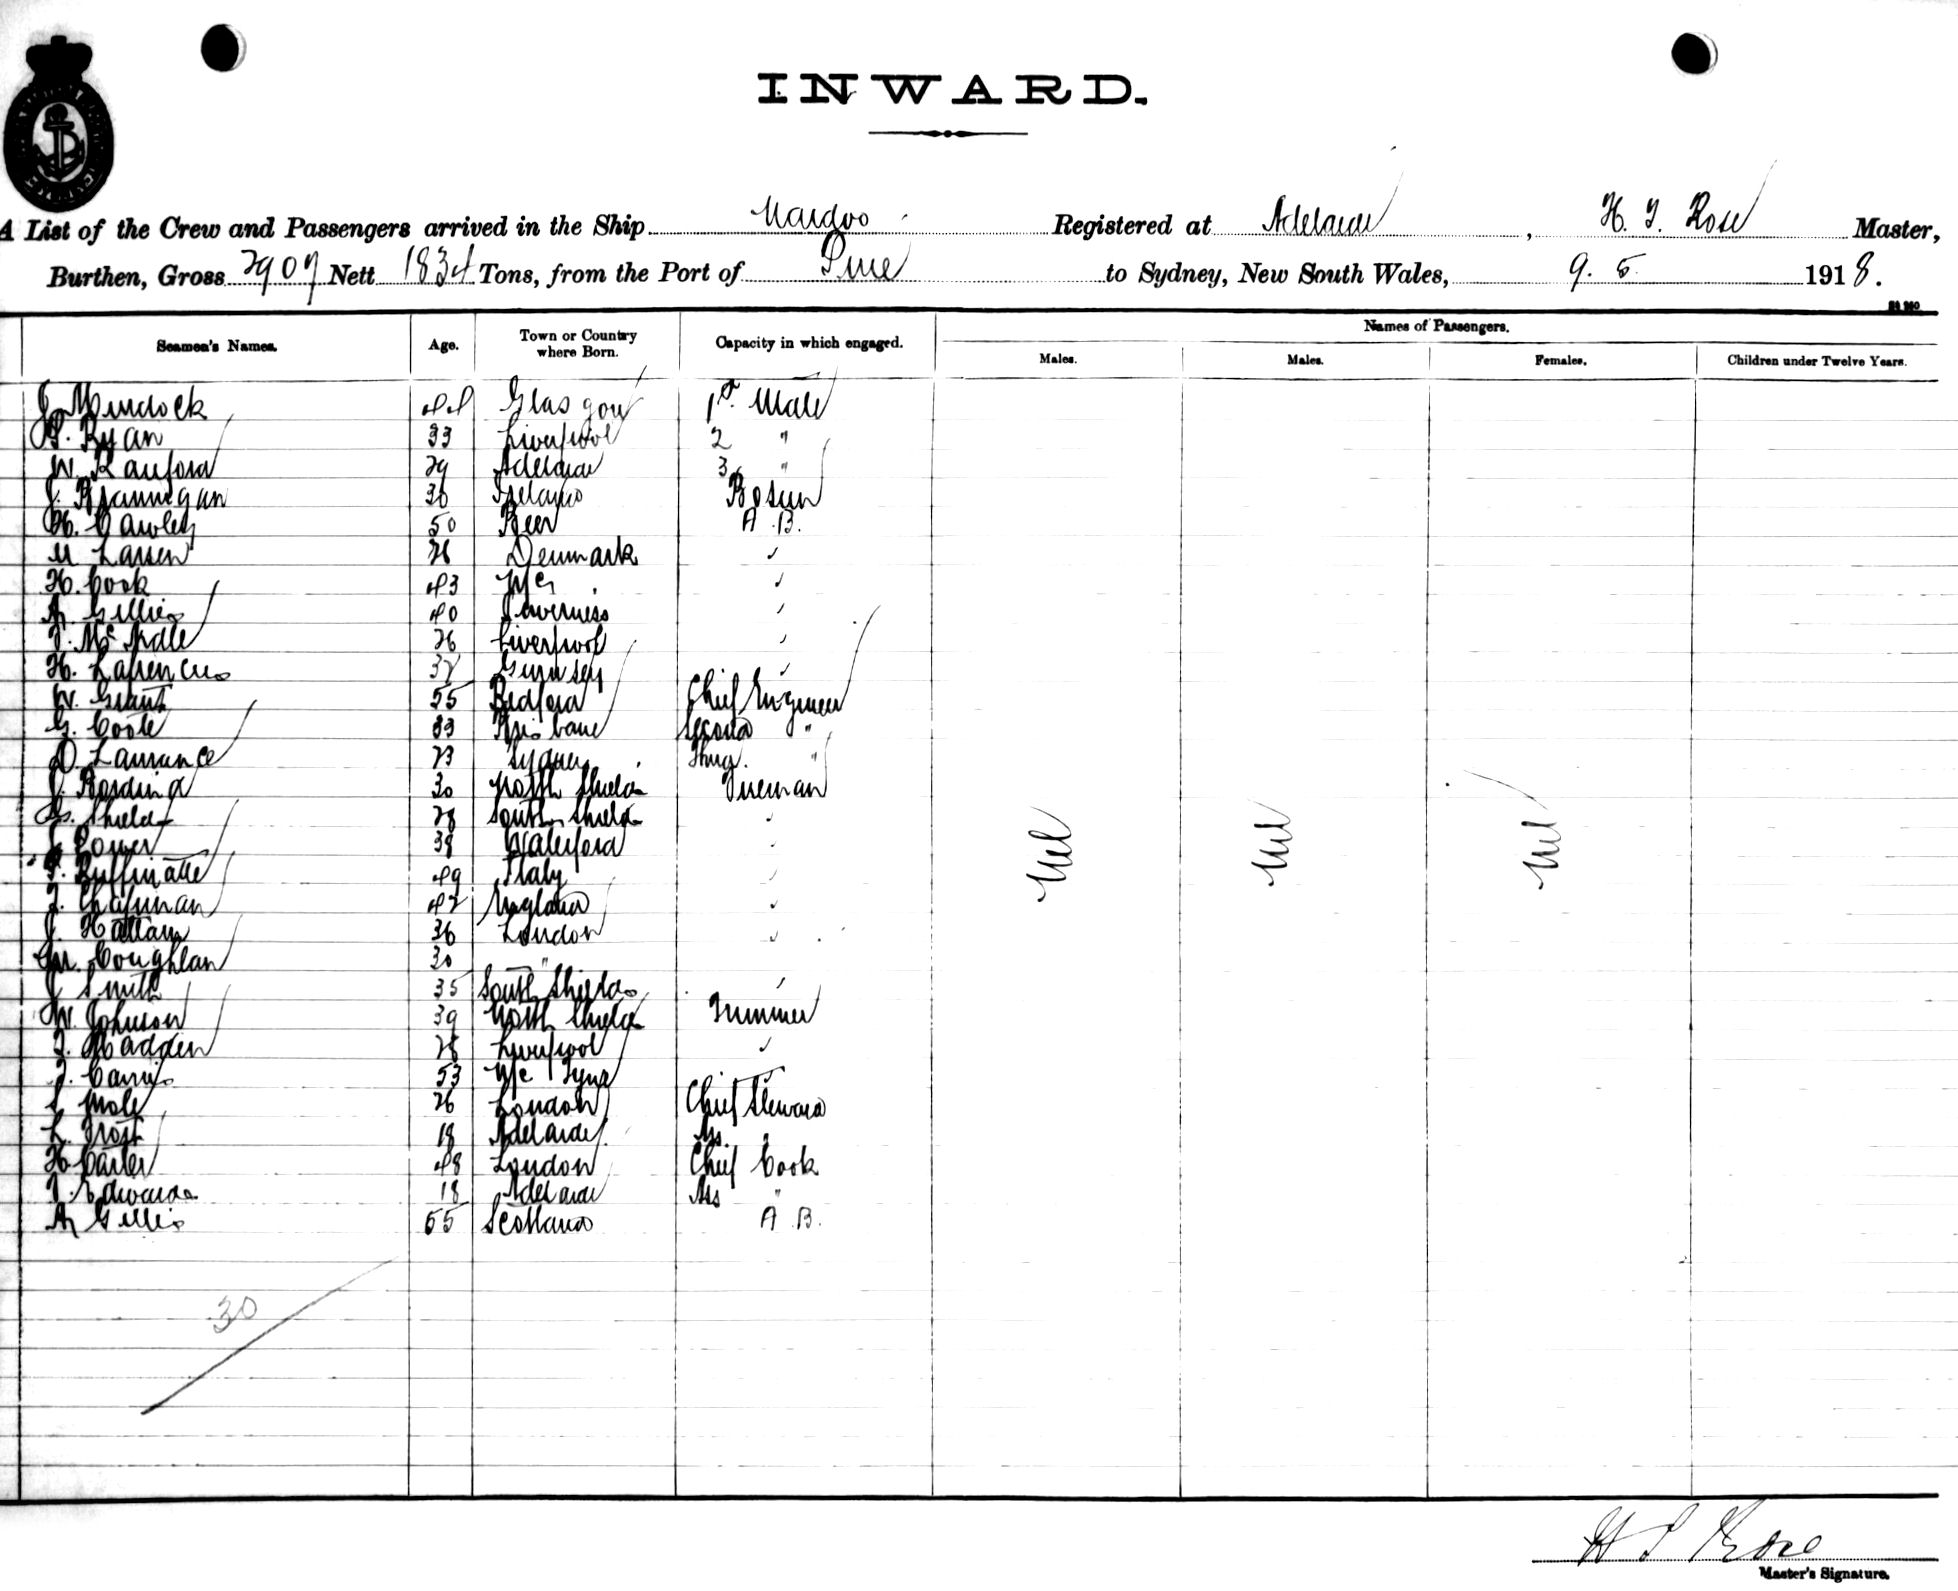 INWARD.
A List of the Crew and Passengers arrived in the Ship Registered at Adelaide, H. T. Rose Master,
Burthen, Gross 2907 Nett 1834 Tons, from the Port of Pirie to Sydney, New South Wales, 9. 5. 1918.
Seamen's Names. Age. Town or Country where Born. Capacity in which engaged. Names of Passengers.
Males. Males. Females. Children under Twelve Years.
J. Murdock 44 Glasgow 1st Mate
P. Ryan 33 Liverpool 2 "
W. Ranford 29 Adelaide 3 "
J. Brannigan 30 Ireland Bosun
H. Cawley 50 Beer A.B.
Larsen 26 Denmark "
H. Cook 43 "
A. Gillies 40 Inverness "
26 Liverpool "
H. Gurnsey "
W. Grant 55 Bedford Chief Engineer
G. Coote 33 Brisbane Second "
D. Laurance 23 Sydney "
J. 30 North Shields Fireman
Shields 28 South Shields "
J. Power 38 Waterford "
49 Italy "
T. Chapman 42 England "
J. Hallam 36 London "
M. Coughlan 30 "
J. Smith 35 South Shields "
W. Johnson 39 North Shields Trimmer
T. Madden 28 Liverpool "
53 N/c Tyne "
Mole 26 London Chief Steward
L. Frost 18 Adelaide Ass. "
H. Carter 48 London Chief Cook
T. Edwards 18 Adelaide Ass "
A. Gillies 55 Scotland A.B.
Nil Nil Nil
30
H T Rose
Master's Signature.